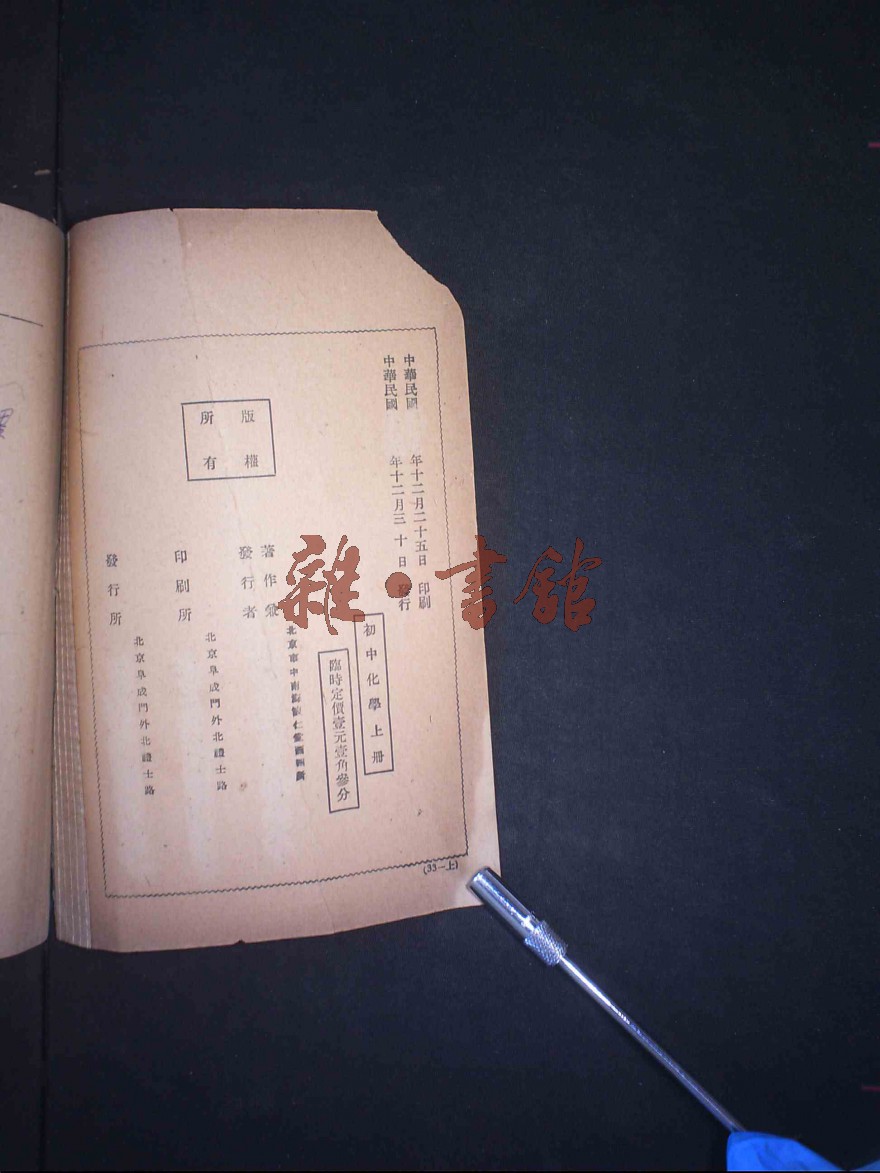 中華民國　年十二月二十五日　印刷
中華民國　年十二月三十日　發行
初中化學上冊
臨時定價壹元壹角參分
著作兼
發行者
北京市中南海懷仁堂西四廳
印刷所
北京阜成門外北禮士路
發行所
北京阜成門外北禮士路
版權
所有
(33—上)
雜·書館